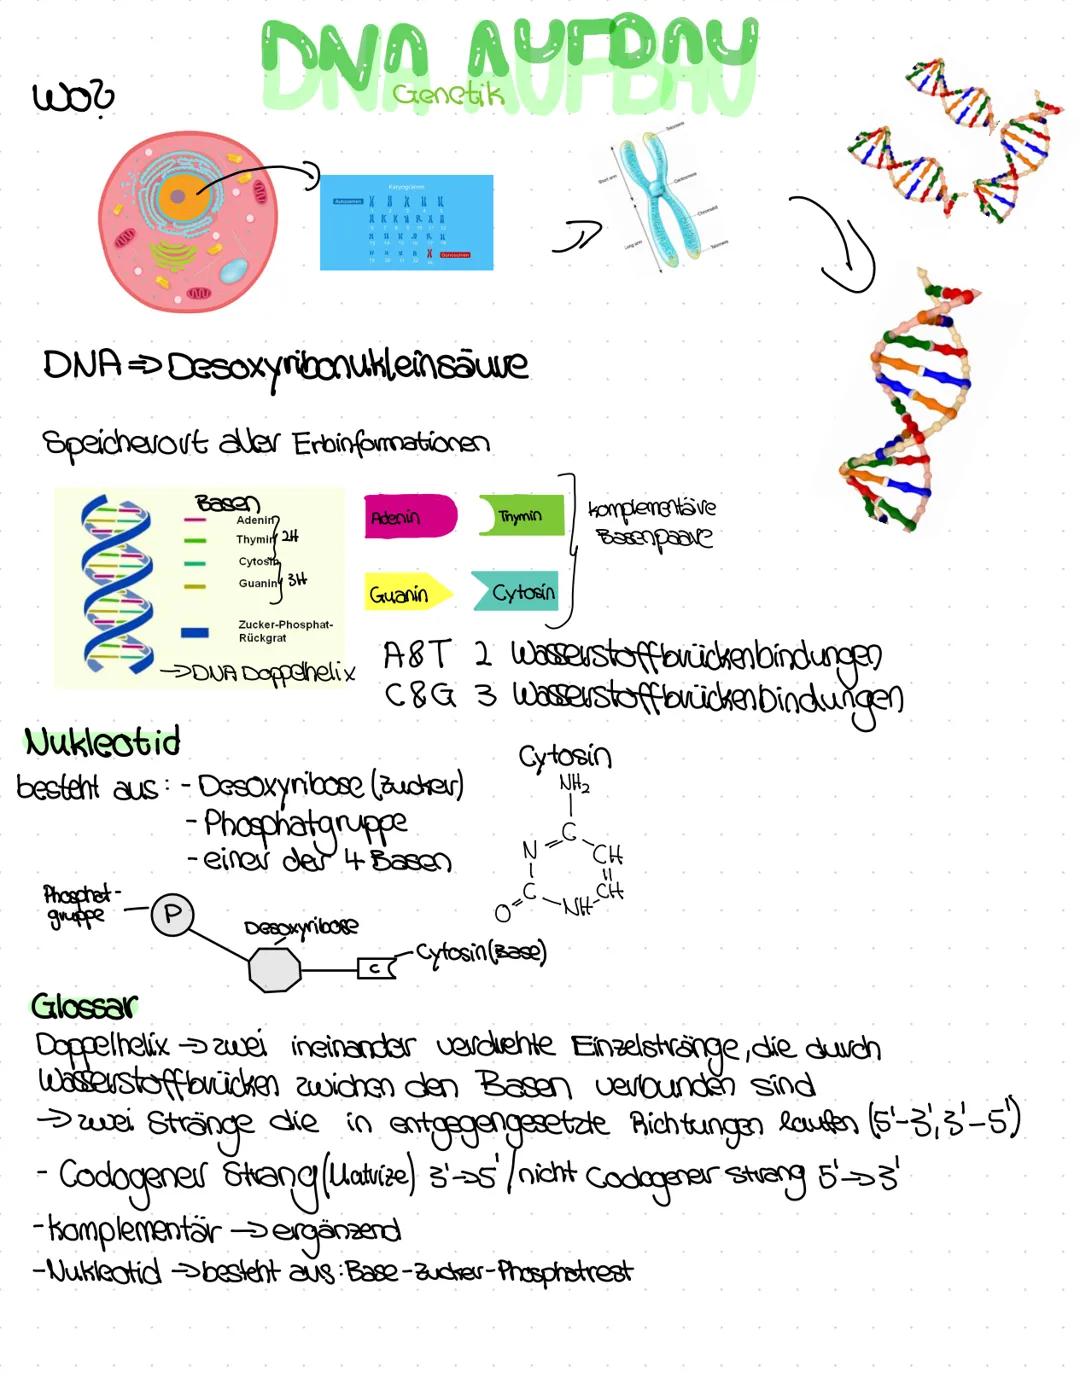 DNA AUFBAU
Genetik
Wo?
Karyogramm
Autosomen
Gonosomen
Telomere
Short arm
Centromere
Chromatid
Long arm
Telomere
DNA ⇒ Desoxyribonukleinsäure
Speicherort aller Erbinformationen
Basen
Adenin
Thymin
2H
Cytosin
Guanin
3H
Zucker-Phosphat-
Rückgrat
→DNA Doppelhelix
Adenin
Thymin
Guanin
Cytosin
komplementäre
Basenpaare
A&T 2 Wasserstoffbrückenbindungen
C&G 3 Wasserstoffbrückenbindungen
Nukleotid
besteht aus: - Desoxyribose (Zucker)
- Phosphatgruppe
- einer der 4 Basen
Cytosin
NH₂
C
N
CH
CH
C
NH
O
Phosphat-
gruppe
P
Desoxyribose
C
Cytosin (Base)
Glossar
Doppelhelix → zwei ineinander verdrehte Einzelstränge, die durch
Wasserstoffbrücken zwichen den Basen verbunden sind
→ zwei Stränge die in entgegengesetzte Richtungen laufen (5'-3', 3'-5')
- Codogener Strang (Matrize) 3'→5' / nicht Codogener Strang 5'→3'
- Komplementär → ergänzend
- Nukleotid → besteht aus: Base-Zucker-Phosphatrest